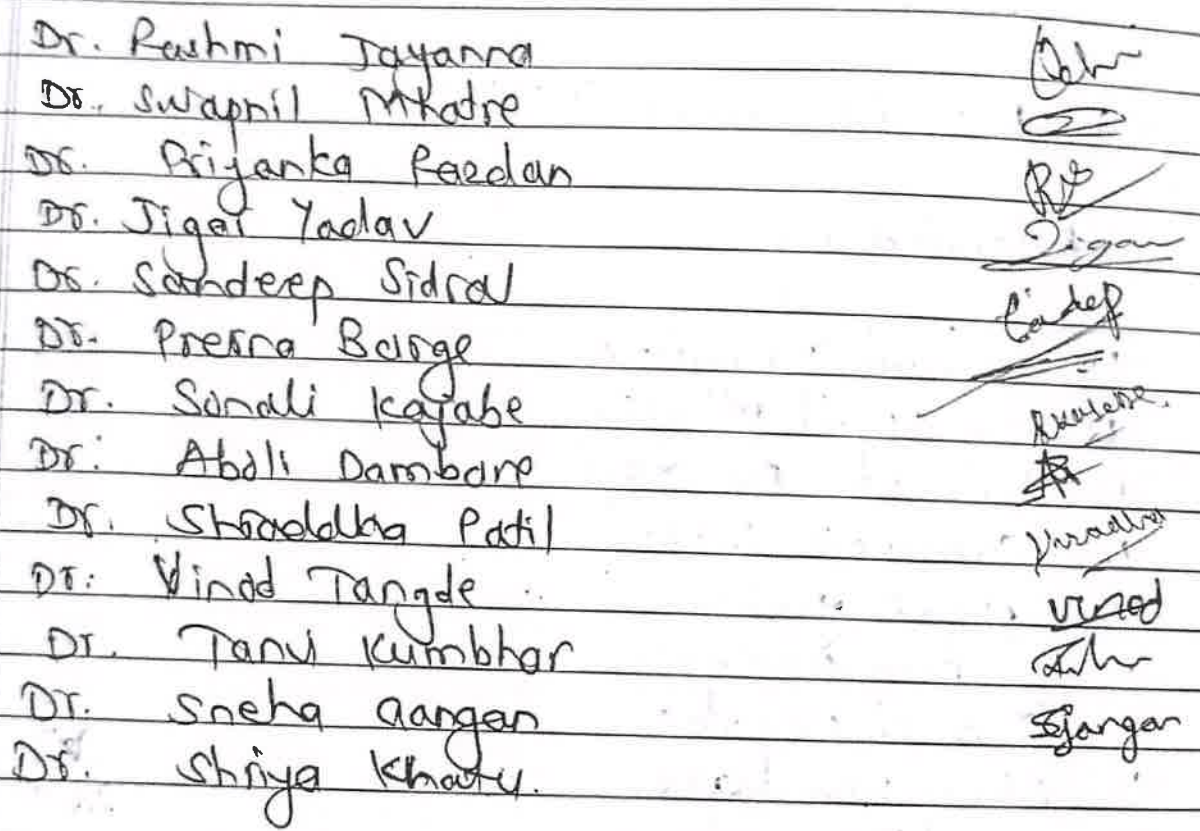 Dr. Rashmi Jayanna
Dr. Swapnil Mhatre
Dr. Priyanka Pardan
Dr. Jiger Yadav Jigar
Dr. Sandeep Sidral
Dr. Prerna Barge
Dr. Sonali Kajabe
Dr. Aboli Dambare
Dr. Shraddha Patil
Dr. Vinod Tangde Vinod
Dr. Tanvi Kumbhar
Dr. Sneha aangan
Dr. Shriya